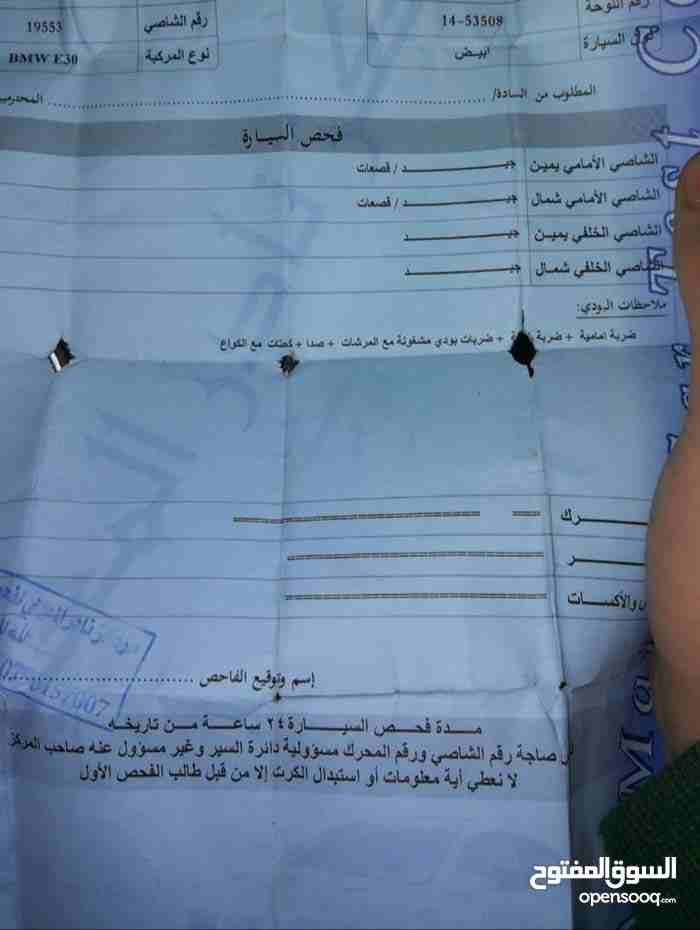 رقم اللوحة 14-53508 رقم الشاصي 19553
السيارة ابيض نوع المركبة BMW E30
المطلوب من السادة/
فحص السيارة
الشاصي الأمامي يمين جيـــــــــــــد / قصعات
الشاصي الأمامي شمال جيـــــــــــــد / قصعات
الشاصي الخلفي يمين جيـــــــــــــد
الشاصي الخلفي شمال جيـــــــــــــد
ملاحظات البودي:
ضربة امامية + ضربة + ضربات بودي مشغولة مع المرشات + صدا + كحتات مع الكواع
والأكسات
إسم وتوقيع الفاحص
مـــدة فحـص السيـــارة ٢٤ ساعـــة مــن تاريخـــه
صاجة رقم الشاصي ورقم المحرك مسؤولية دائرة السير وغير مسؤول عنه صاحب المركز
لا نعطي أية معلومات أو استبدال الكرت إلا من قبل طالب الفحص الأول
السوق المفتوح
opensooq.com